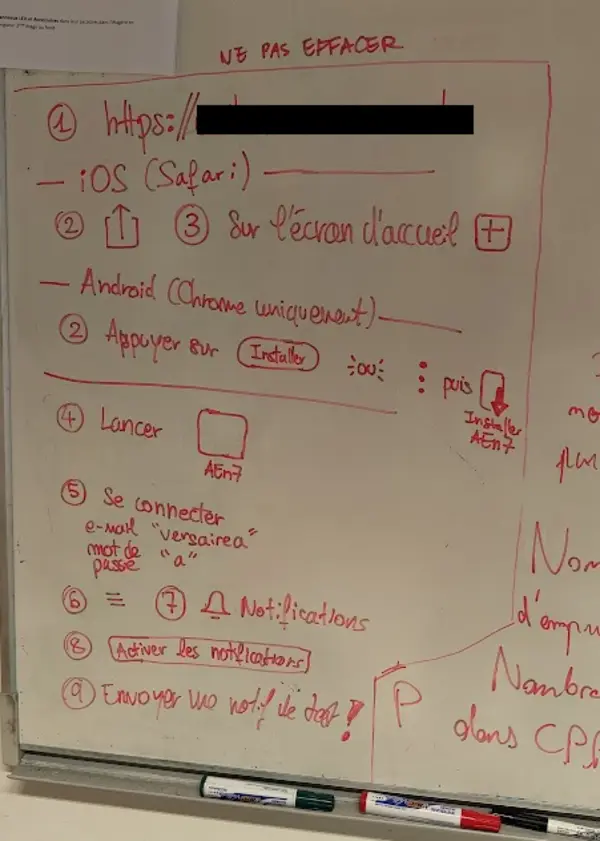 NE PAS EFFACER
① https://
— iOS (Safari) —
② ③ Sur l'écran d'accueil +
— Android (Chrome uniquement) —
② Appuyer sur Installer ou ⋮ puis
Installer
AEn7
④ Lancer
AEn7
⑤ Se connecter
e-mail "versairea"
mot de passe "a"
⑥ ≡ ⑦ Notifications
⑧ Activer les notifications
⑨ Envoyer une notif de test !
Nom
d'empru
Nombre
P dans CPP